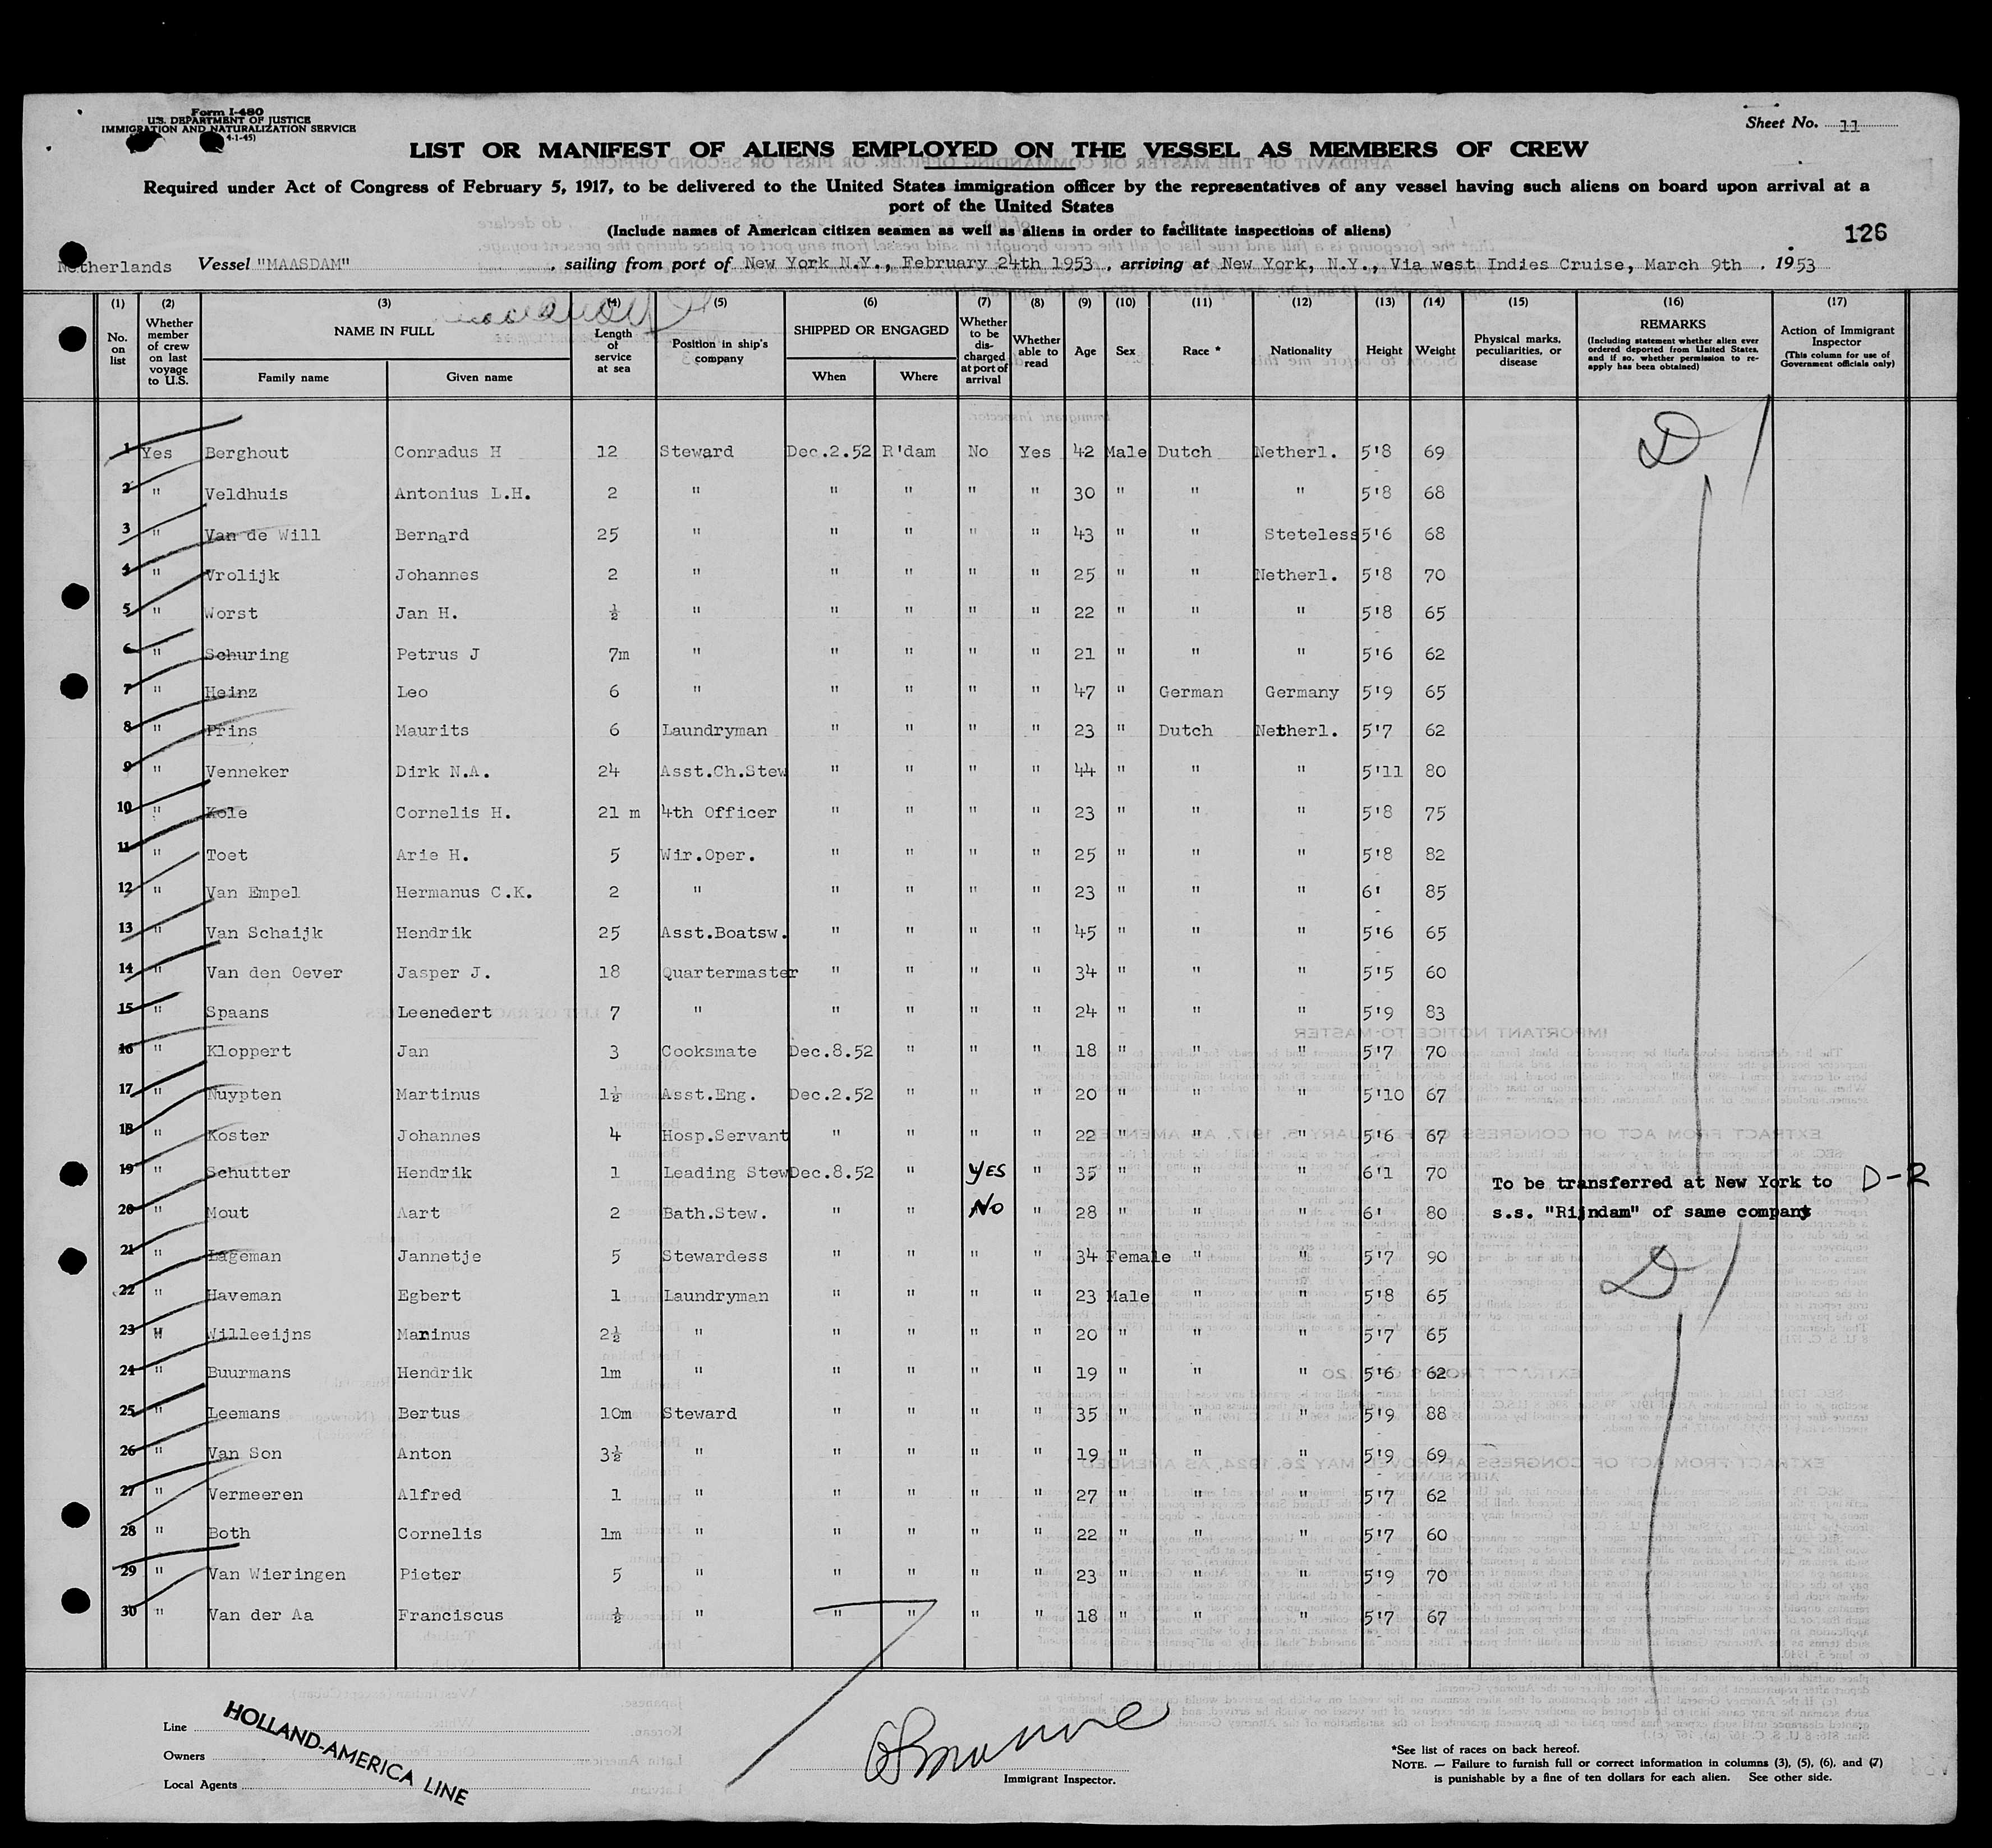 Form I-480
U.S. DEPARTMENT OF JUSTICE
IMMIGRATION AND NATURALIZATION SERVICE
4-1-45)
Sheet No. 11
LIST OR MANIFEST OF ALIENS EMPLOYED ON THE VESSEL AS MEMBERS OF CREW
Required under Act of Congress of February 5, 1917, to be delivered to the United States immigration officer by the representatives of any vessel having such aliens on board upon arrival at a
port of the United States
(Include names of American citizen seamen as well as aliens in order to facilitate inspections of aliens)
126
Netherlands Vessel "MAASDAM", sailing from port of New York N.Y., February 24th 1953, arriving at New York, N.Y., Via west Indies Cruise, March 9th, 1953
(1) No. on list (2) Whether member of crew on last voyage to U.S. (3) NAME IN FULL Family name Given name (4) Length of service at sea (5) Position in ship's company (6) SHIPPED OR ENGAGED When Where (7) Whether to be discharged at port of arrival (8) Whether able to read (9) Age (10) Sex (11) Race * (12) Nationality (13) Height (14) Weight (15) Physical marks, peculiarities, or disease (16) REMARKS (Including statement whether alien ever ordered deported from United States, and if so, whether permission to re-apply has been obtained) (17) Action of Immigrant Inspector (This column for use of Government officials only)
1 Yes Berghout Conradus H 12 Steward Dec.2.52 R'dam No Yes 42 Male Dutch Netherl. 5'8 69 D
2 " Veldhuis Antonius L.H. 2 " " " " " 30 " " " 5'8 68
3 " Van de Will Bernard 25 " " " " " 43 " " Steteless 5'6 68
4 " Vrolijk Johannes 2 " " " " " 25 " " Netherl. 5'8 70
5 " Worst Jan H. ½ " " " " " 22 " " " 5'8 65
6 " Schuring Petrus J 7m " " " " " 21 " " " 5'6 62
7 " Heinz Leo 6 " " " " " 47 " German Germany 5'9 65
8 " Prins Maurits 6 Laundryman " " " " 23 " Dutch Netherl. 5'7 62
9 " Venneker Dirk N.A. 24 Asst.Ch.Stew " " " " 44 " " " 5'11 80
10 " Kole Cornelis H. 21 m 4th Officer " " " " 23 " " " 5'8 75
11 " Toet Arie H. 5 Wir.Oper. " " " " 25 " " " 5'8 82
12 " Van Empel Hermanus C.K. 2 " " " " " 23 " " " 6' 85
13 " Van Schaijk Hendrik 25 Asst.Boatsw. " " " " 45 " " " 5'6 65
14 " Van den Oever Jasper J. 18 Quartermaster " " " " 34 " " " 5'5 60
15 " Spaans Leenedert 7 " " " " " 24 " " " 5'9 83
16 " Kloppert Jan 3 Cooksmate Dec.8.52 " " " 18 " " " 5'7 70
17 " Nuypten Martinus 1½ Asst.Eng. Dec.2.52 " " " 20 " " " 5'10 67
18 " Koster Johannes 4 Hosp.Servant " " " " 22 " " " 5'6 67
19 " Schutter Hendrik 1 Leading Stew Dec.8.52 " YES " 35 " " " 6'1 70 To be transferred at New York to D-R
20 " Mout Aart 2 Bath.Stew. " " No " 28 " " " 6' 80 s.s. "Rijndam" of same company
21 " Lageman Jannetje 5 Stewardess " " " " 34 Female " " 5'7 90 D
22 " Haveman Egbert 1 Laundryman " " " " 23 Male " " 5'8 65
23 " Willeeijns Marinus 2½ " " " " " 20 " " " 5'7 65
24 " Buurmans Hendrik 1m " " " " " 19 " " " 5'6 62
25 " Leemans Bertus 10m Steward " " " " 35 " " " 5'9 88
26 " Van Son Anton 3½ " " " " " 19 " " " 5'9 69
27 " Vermeeren Alfred 1 " " " " " 27 " " " 5'7 62
28 " Both Cornelis 1m " " " " " 22 " " " 5'7 60
29 " Van Wieringen Pieter 5 " " " " " 23 " " " 5'9 70
30 " Van der Aa Franciscus ½ " " " " " 18 " " " 5'7 67
Line
Owners
Local Agents
HOLLAND-AMERICA LINE
Immigrant Inspector.
*See list of races on back hereof.
NOTE. — Failure to furnish full or correct information in columns (3), (5), (6), and (7)
is punishable by a fine of ten dollars for each alien. See other side.